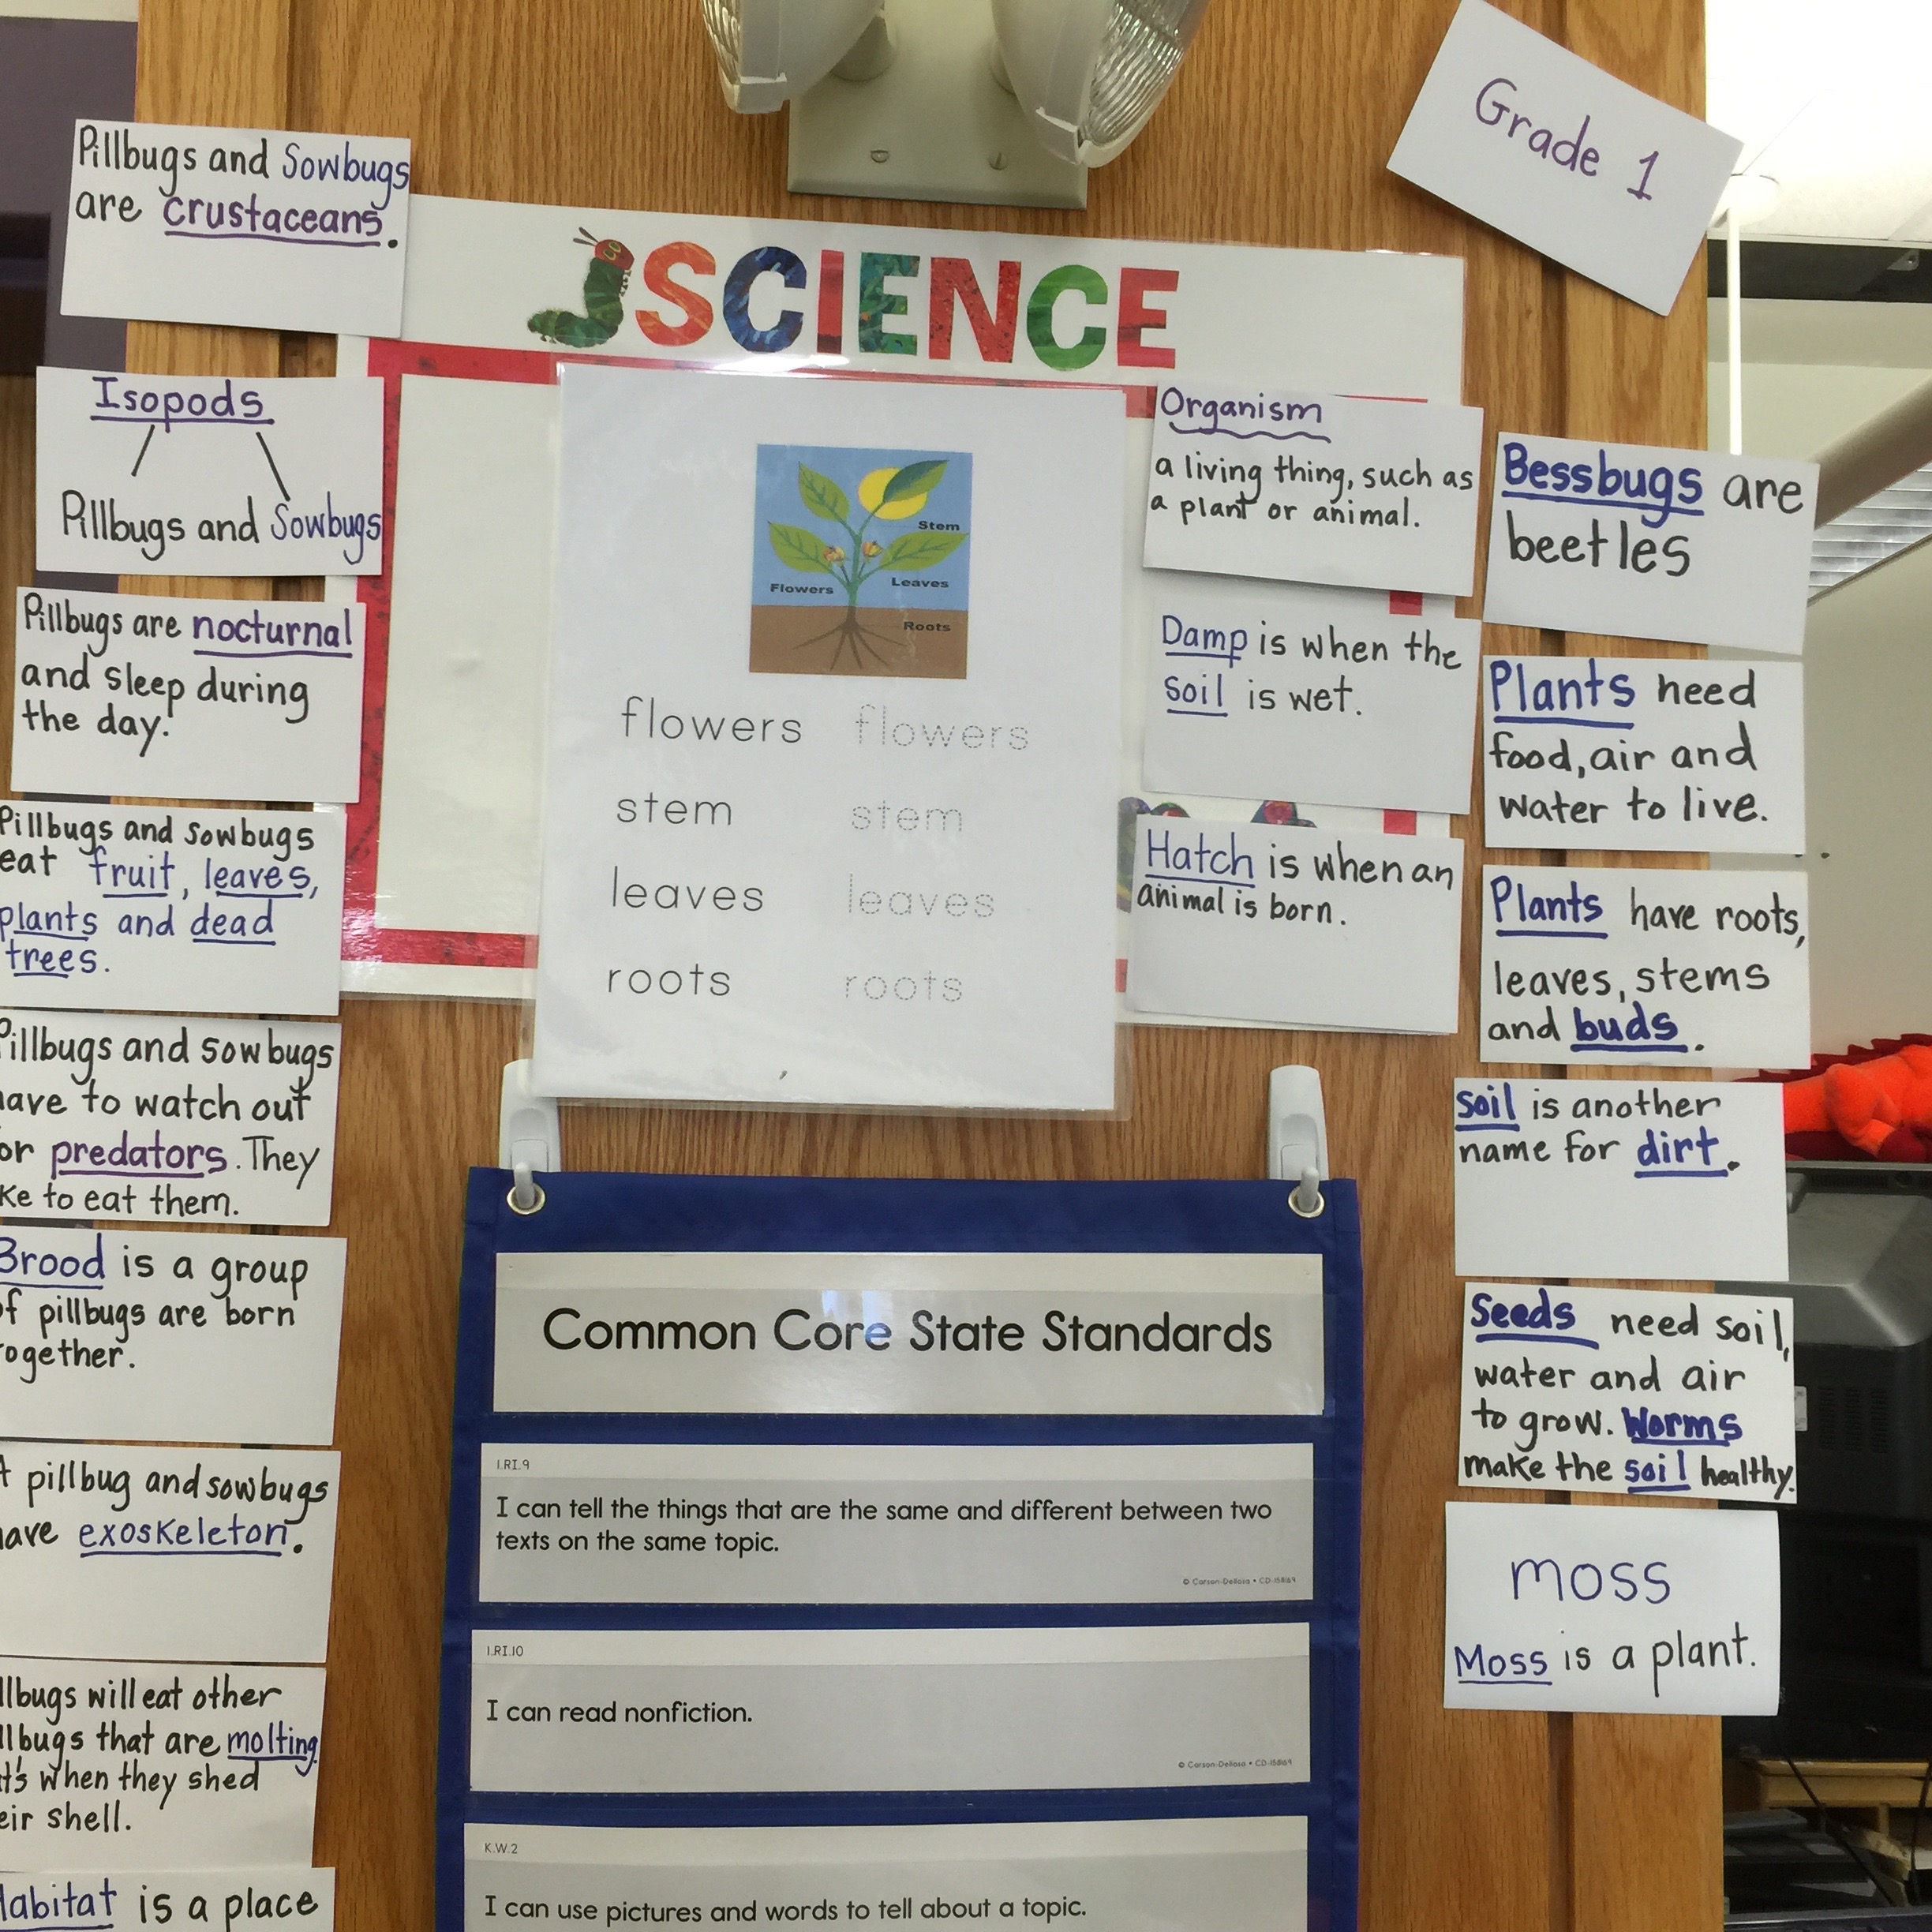 Grade 1
Pillbugs and Sowbugs
are crustaceans.
Isopods
Pillbugs and Sowbugs
Pillbugs are nocturnal
and sleep during
the day.
Pillbugs and sowbugs
eat fruit, leaves,
plants and dead
trees.
Pillbugs and sowbugs
ave to watch out
or predators. They
ke to eat them.
Brood is a group
of pillbugs are born
ogether.
A pillbug and sowbugs
ave exoskeleton.
llbugs will eat other
llbugs that are molting.
t's when they shed
eir shell.
Habitat is a place
SCIENCE
Stem
Flowers
Leaves
Roots
flowers flowers
stem stem
leaves leaves
roots roots
Organism
a living thing, such as
a plant or animal.
Damp is when the
soil is wet.
Hatch is when an
animal is born.
Bessbugs are
beetles
Plants need
food, air and
water to live.
Plants have roots,
leaves, stems
and buds.
soil is another
name for dirt.
Seeds need soil,
water and air
to grow. Worms
make the soil healthy.
moss
Moss is a plant.
Common Core State Standards
1.RI.9
I can tell the things that are the same and different between two
texts on the same topic.
© Carson-Dellosa • CD-158169
1.RI.10
I can read nonfiction.
© Carson-Dellosa • CD-158169
K.W.2
I can use pictures and words to tell about a topic.